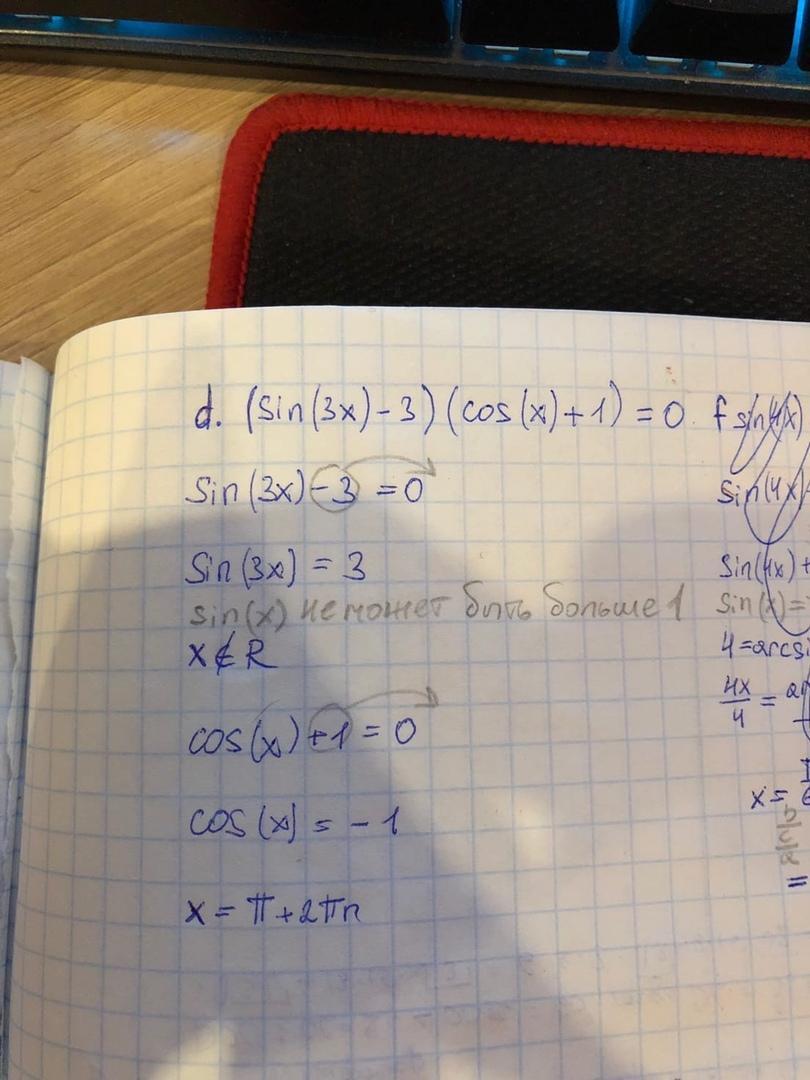 d. (sin(3x)-3)(cos(x)+1)=0
sin(3x)-3=0
sin(3x)=3
sin(x) не может быть больше 1
x∉R
cos(x)+1=0
cos(x)=-1
x=π+2πn
f sin(4x)
sin(4x)
sin(4x)+
sin(x)=
4=arcsi
4x/4=
x=
=